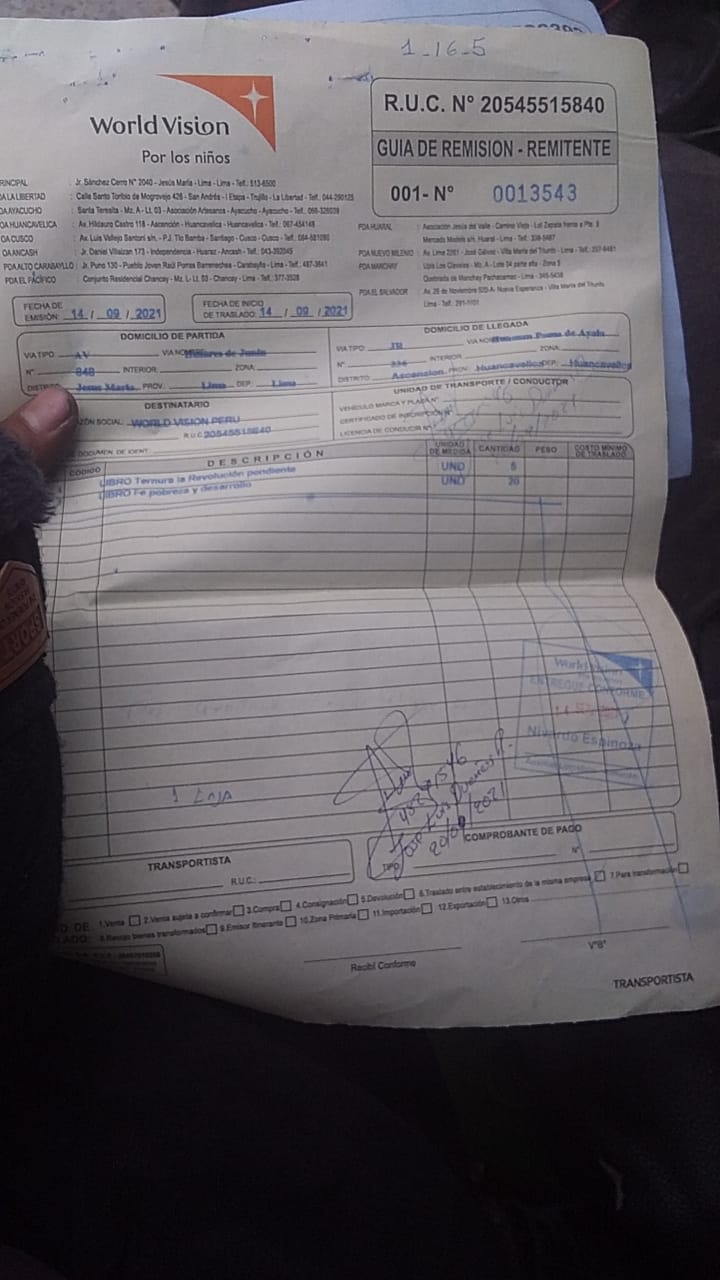 1-16-5
World Vision
Por los niños
R.U.C. Nº 20545515840
GUIA DE REMISION - REMITENTE
001- Nº 0013543
RINCIPAL : Jr. Sánchez Cerro Nº 2040 - Jesús María - Lima - Lima - Telf.: 513-6500
DA LA LIBERTAD : Calle Santo Toribio de Mogrovejo 426 - San Andrés - I Etapa - Trujillo - La Libertad - Telf.: 044-290125
DA AYACUCHO : Santa Teresita - Mz. A - Lt. 03 - Asociación Artesanos - Ayacucho - Ayacucho - Telf.: 066-326039
OA HUANCAVELICA : Av. Hildauro Castro 118 - Ascención - Huancavelica - Huancavelica - Telf.: 067-454148
OA CUSCO : Av. Luis Vallejo Santoni s/n - P.J. Tio Bamba - Santiago - Cusco - Cusco - Telf.: 084-581080
OA ANCASH : Jr. Daniel Villaizan 173 - Independencia - Huaraz - Ancash - Telf.: 043-392045
PDA ALTO CARABAYLLO : Jr. Puno 130 - Pueblo Joven Raúl Porras Barrenechea - Carabayllo - Lima - Telf.: 487-3641
PDA EL PACÍFICO : Conjunto Residencial Chancay - Mz. L - Lt. 03 - Chancay - Lima - Telf.: 377-3528
PDA HUARAL : Asociación Jesús del Valle - Camino Viejo - Lot Zapata frente a Pta. 5
Mercado Modelo s/n. Huaral - Lima - Telf.:
PDA NUEVO MILENIO : Av. Lima 2261 - José Gálvez - Villa María del Triunfo - Lima - Telf.:
PDA MANCHAY : Upis Los Claveles - Mz. A - Lote 34 parte alta - Zona 5
Quebrada de Manchay Pachacamac - Lima - 345-5438
PDA EL SALVADOR : Av. 26 de Noviembre Nueva Esperanza - Villa María del Triunfo
Lima - Telf.: 291-1101
FECHA DE EMISIÓN: 14 / 09 / 2021
FECHA DE INICIO DE TRASLADO: 14 / 09 / 2021
DOMICILIO DE PARTIDA
VIA TIPO AV VIA NOMBRE Mariano de Junin
Nº 848 INTERIOR: ZONA:
DISTRITO Jesus Maria PROV. Lima DEP. Lima
DOMICILIO DE LLEGADA
VIA TIPO. JR VIA NOMBRE Poma de Ayala
Nº 336 INTERIOR ZONA:
DISTRITO Ascension PROV. Huancavelica DEP. Huancavelica
DESTINATARIO
ZÓN SOCIAL: WORLD VISION PERU
R.U.C 20545515840
DOCUMEN. DE IDENT:
UNIDAD DE TRANSPORTE / CONDUCTOR
VEHÍCULO MARCA Y PLACA Nº
CERTIFICADO DE INSCRIPCIÓN Nº
LICENCIA DE CONDUCIR Nº
CÓDIGO DESCRIPCIÓN UNIDAD DE MEDIDA CANTIDAD PESO COSTO MINIMO DE TRASLADO
LIBRO Ternura la Revolución pendiente UND 5
LIBRO Fe pobreza y desarrollo UND 20
World Vision
ENTREGUE CONFORME
Nivardo Espinoza
1 CAJA
José Luis
20/09/2021
TRANSPORTISTA
R.U.C.:
COMPROBANTE DE PAGO
TIPO: Nº
O DE: 1.Venta 2.Venta sujeta a confirmar 3.Compra 4.Consignación 5.Devolución 6.Traslado entre establecimiento de la misma empresa 7.Para transformación
LADO: 8.Recojo bienes transformados 9.Emisor Itinerante 10.Zona Primaria 11.Importación 12.Exportación 13.Otros
Recibí Conforme
VºBº
TRANSPORTISTA